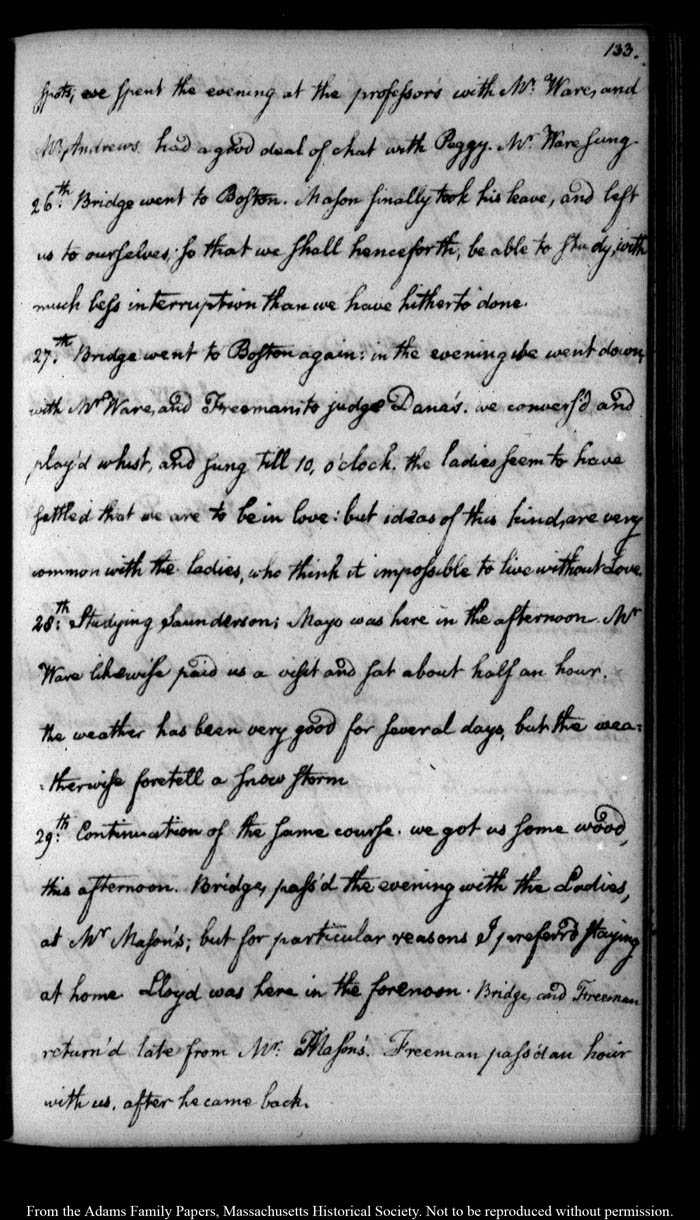 133.
spots, we spent the evening at the professor's with Mr. Ware, and
Mr. Andrews. had a good deal of chat with Peggy. Mr. Ware sung.
26th. Bridge went to Boston. Mason finally took his leave, and left
us to ourselves; so that we shall henceforth, be able to study, with
much less interruption than we have hitherto done.
27th. Bridge went to Boston again: in the evening we went down,
with Mr Ware, and Freeman; to judge Dana's. we convers'd and
play'd whist, and sung till 10, o'clock. the ladies seem to have
settled that we are to be in love: but ideas of this kind, are very
common with the ladies, who think it impossible to live without Love.
28th: Studying Saunderson; Mayo was here in the afternoon. Mr
Ware likewise paid us a visit and sat about half an hour.
the weather has been very good for several days, but the wea:
:therwise foretell a snow storm
29th: Continuation of the same course. we got us some wood,
this afternoon. Bridge, pass'd the evening with the Ladies,
at Mr Mason's; but for particular reasons I preferr'd staying
at home. Lloyd was here in the forenoon. Bridge, and Freeman
return'd late from Mr. Mason's. Freeman pass'd an hour
with us. after he came back.
From the Adams Family Papers, Massachusetts Historical Society. Not to be reproduced without permission.